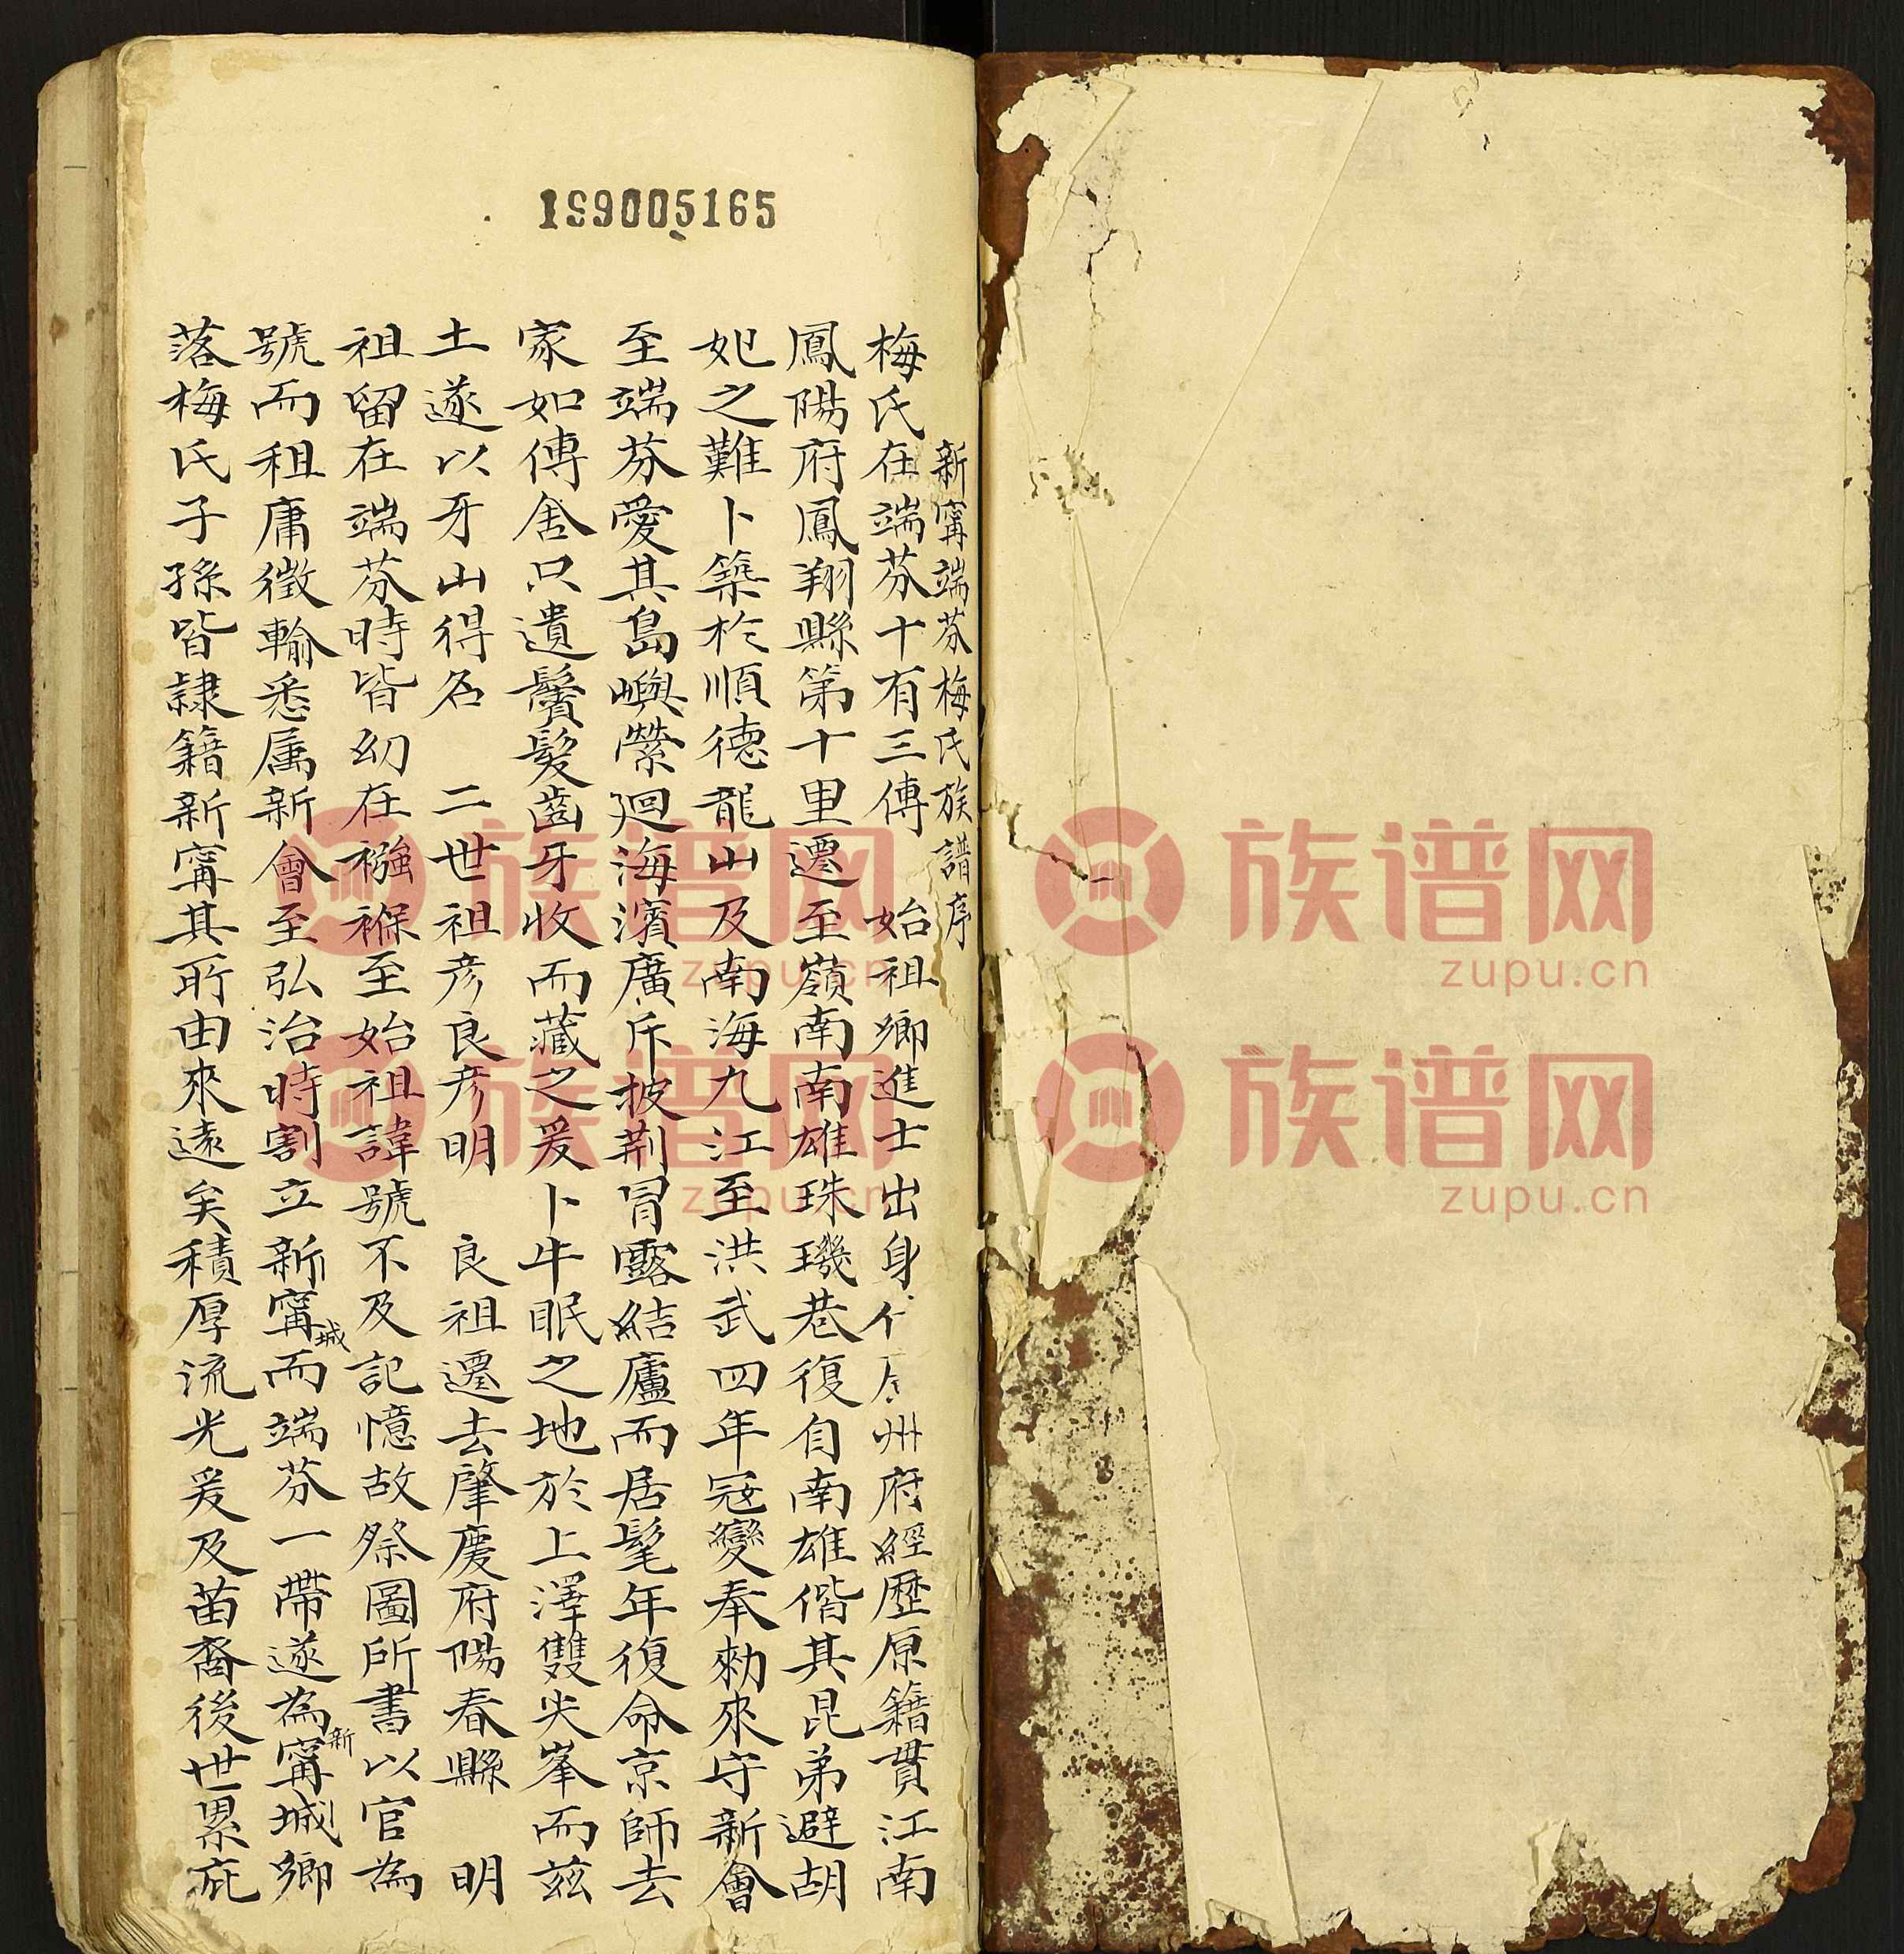 199005165
新寗端芬梅氏族譜序
梅氏在端芬十有三傳 始祖鄉進士出身 州府經歷原籍貫江南
鳳陽府鳳翔縣第十里遷至嶺南南雄珠璣巷復自南雄偕其昆弟避胡
妃之難卜築於順德龍山及南海九江至洪武四年冦變奉勑來守新會
至端芬愛其島嶼縈廻海濱廣斥披荆冒露結廬而居髦年復命京師去
家如傳舍只遺鬢髮齒牙收而藏之爰卜牛眠之地於上澤雙尖峯而茲
土遂以牙山得名 二世祖彦良彦明 良祖遷去肇慶府陽春縣 明
祖留在端芬時皆幼在襁褓至始祖諱號不及記憶故祭圖所書以官為
號而租庸徵輸悉属新會至弘治時割立新寗城而端芬一帶遂為新寗城鄉
落梅氏子孫皆隷籍新寗其所由來遠矣積厚流光爰及苗裔後世累庇
族谱网
zupu.cn
族谱网
zupu.cn
族谱网
zupu.cn
族谱网
zupu.cn